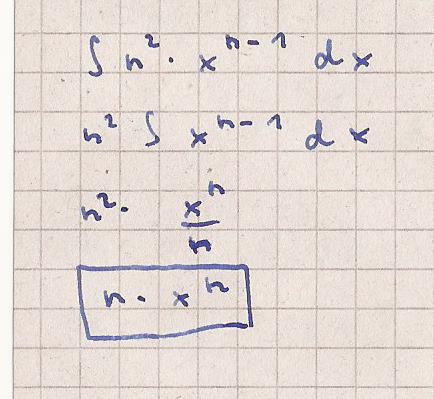 ∫ n² · xⁿ⁻¹ dx
n² ∫ xⁿ⁻¹ dx
n² · xⁿ/n
n · xⁿ